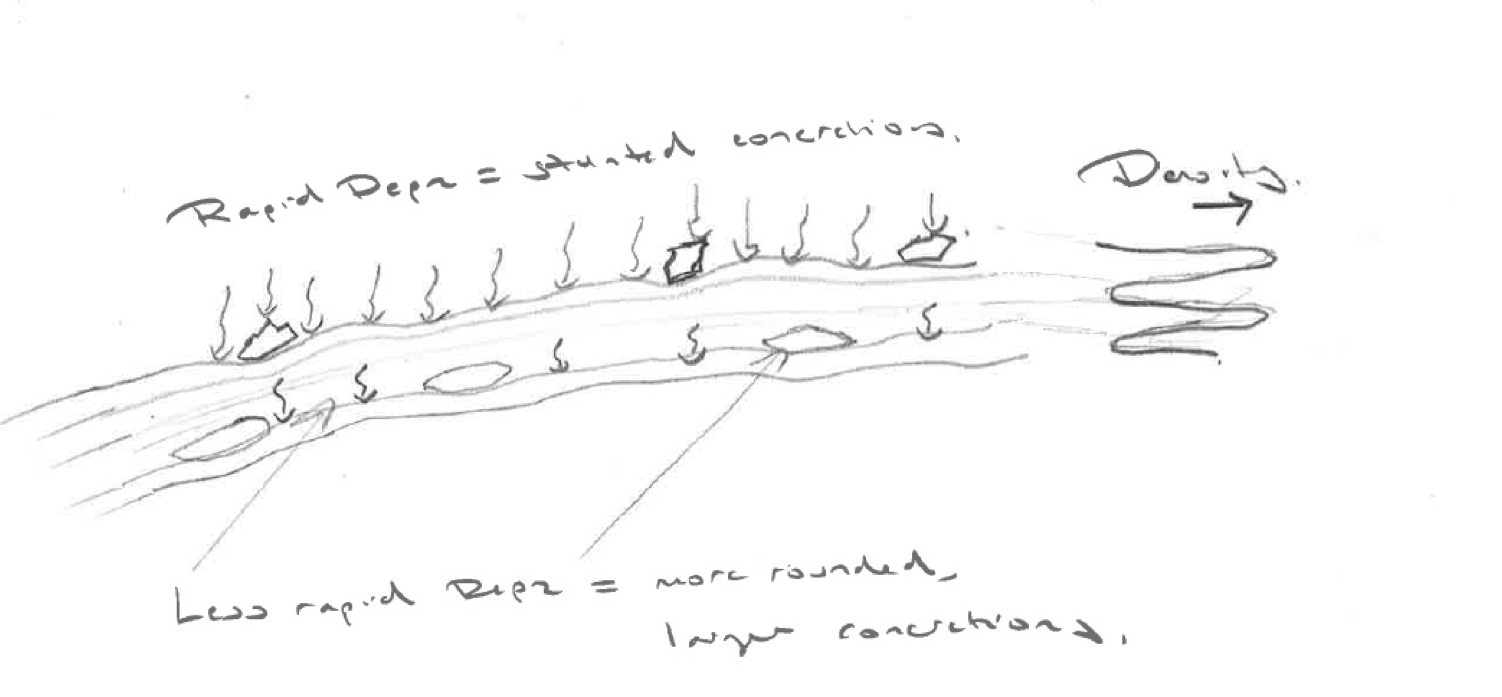 Rapid Depn = stunted concretions.
Density.
Less rapid Depn = more rounded,
larger concretions.